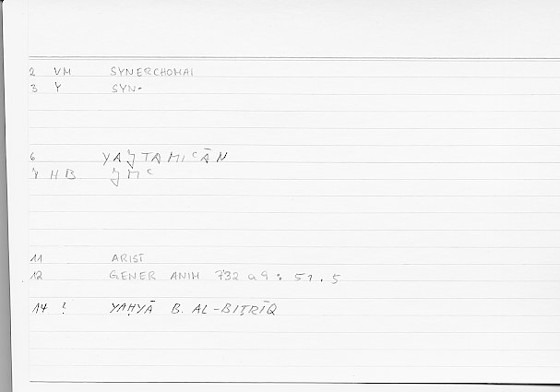 2 VM SYNERCHOMAI
3 Y SYN-
6 YAǦTAMIʿĀN
HB ǦMʿ
11 ARIST
12 GENER ANIM 732 a 9 : 51.5
14 ! YAḤYĀ B. AL-BIṬRĪQ